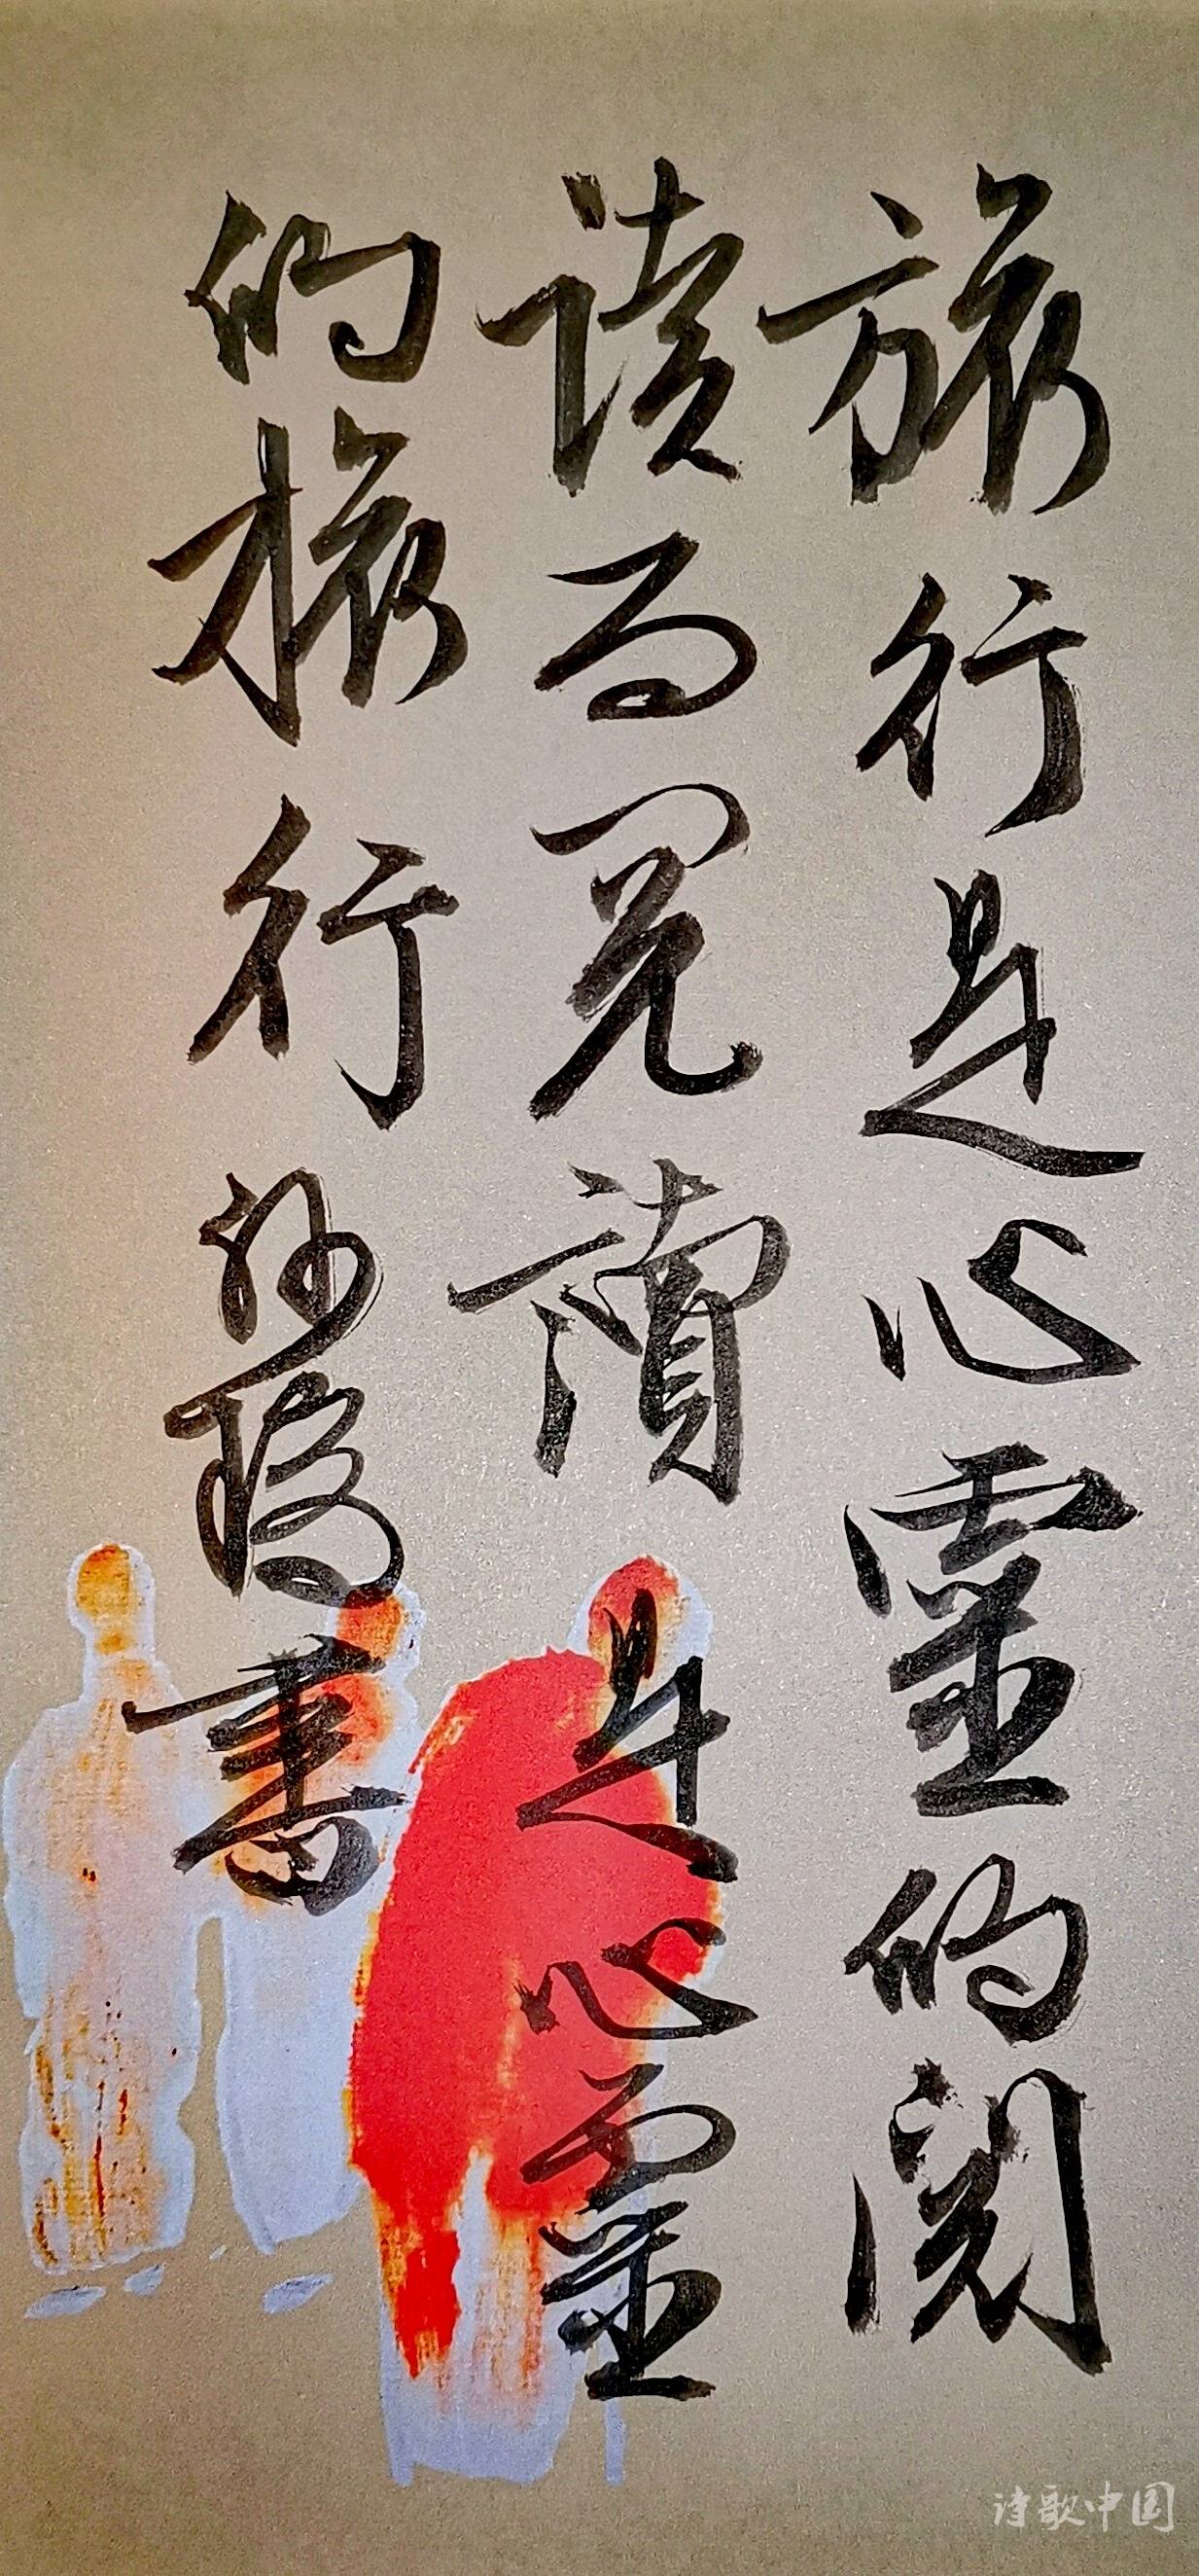 旅行是心靈的閱
讀而閱讀是心靈
的旅行
書
诗歌中国